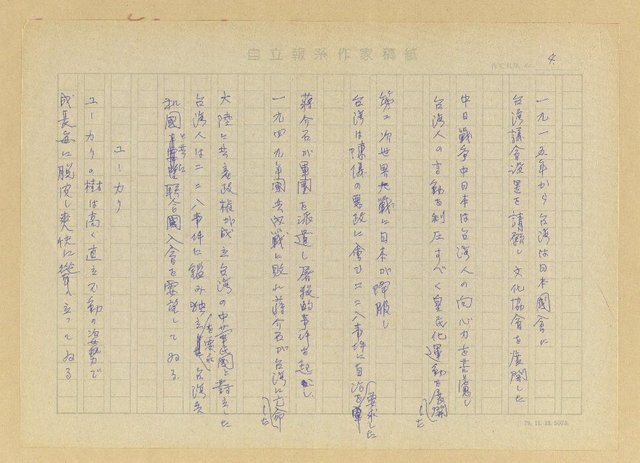 自立報系作家稿紙
4.
一九一五年から台湾は日本國會に
台湾議會設置を請願し文化協會を展開した
中日戰爭中日本は台湾人の向心力を苦慮し
台湾人の言動を制圧すべく皇民化運動を展開した
第二次世界大戰に日本が降服し
台湾は陳儀の悪政に會ひ二二八事件に自治を要求した
蔣介石が軍團を派遣し屠殺的事件を起し
一九四九年國共内戰に敗れ蔣介石が台湾に亡命した
大陸と共產政權が成立台湾の中華民國と対立した
台湾人は二二八事件に鑑み独立
台湾共
和國と共に聯合國入會を要望してゐる
ユーカリ
ユーカリの樹は高く直立不動の姿勢で
成長毎に脱皮し爽快に聳え立ってゐる